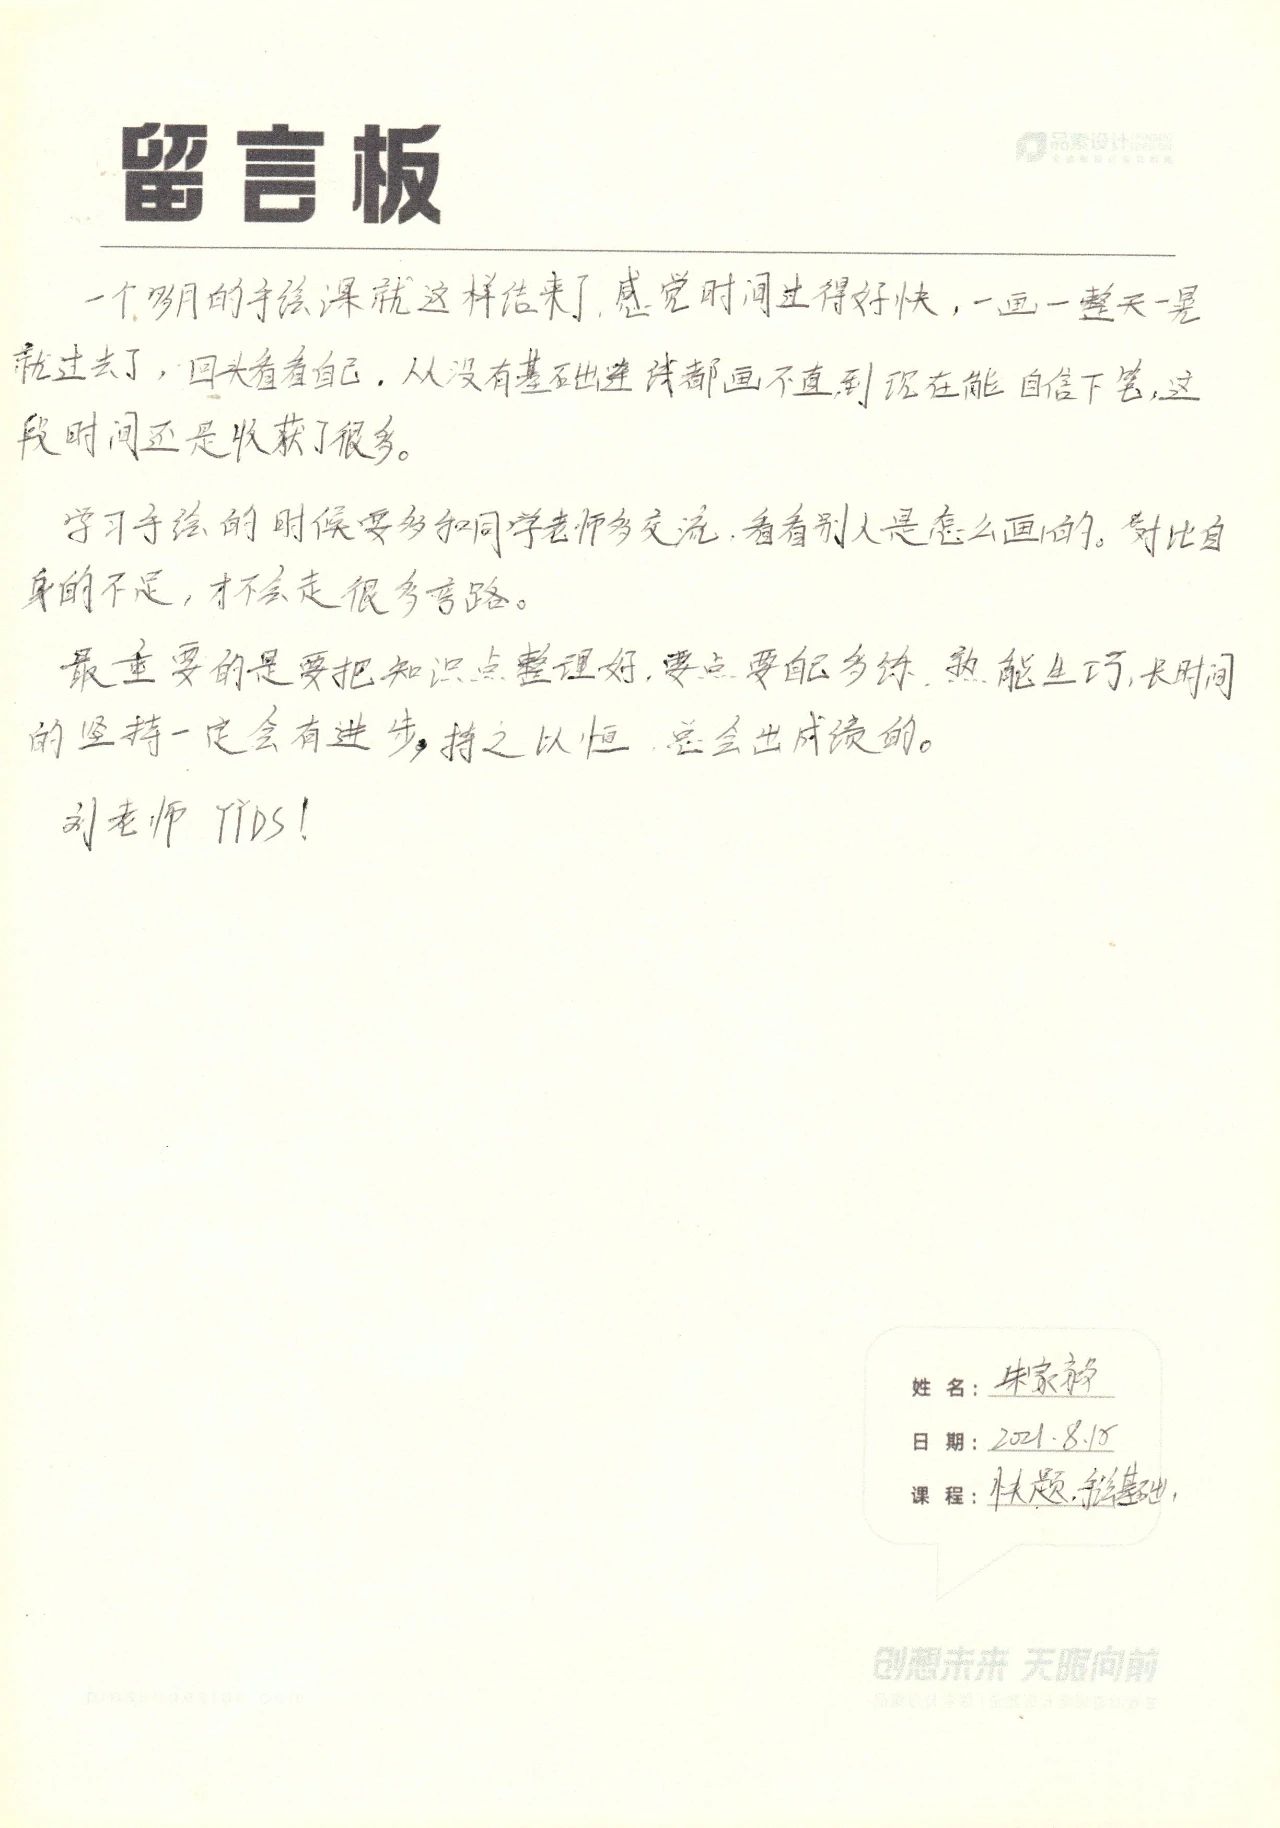 留言板
一个多月的手绘课就这样结束了,感觉时间过得好快,一画一整天一晃
就过去了,回头看看自己.从没有基础连线都画不直,到现在能自信下笔,这
段时间还是收获了很多。
学习手绘的时候要多和同学老师多交流.看看别人是怎么画的。对比自
身的不足,才不会走很多弯路。
最重要的是要把知识点整理好.要点要自己多练.熟能生巧,长时间
的坚持一定会有进步,持之以恒.总会出成绩的。
刘老师 YYDS!
姓 名: 朱家
日 期: 2021.8.18
课 程: 快题.手绘基础,
创想未来 天赋向前